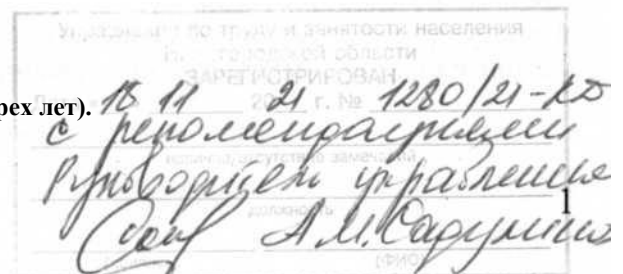 Управление по труду и занятости населения
Н городской области
ЗАРЕГИСТРИРОВАН
рех лет). 18 11 2021 г. № 1280/21-КД
с рекомендациями
наличие, отсутствие замечаний
Руководитель управления
1
должность
А.М.
(ФИО)